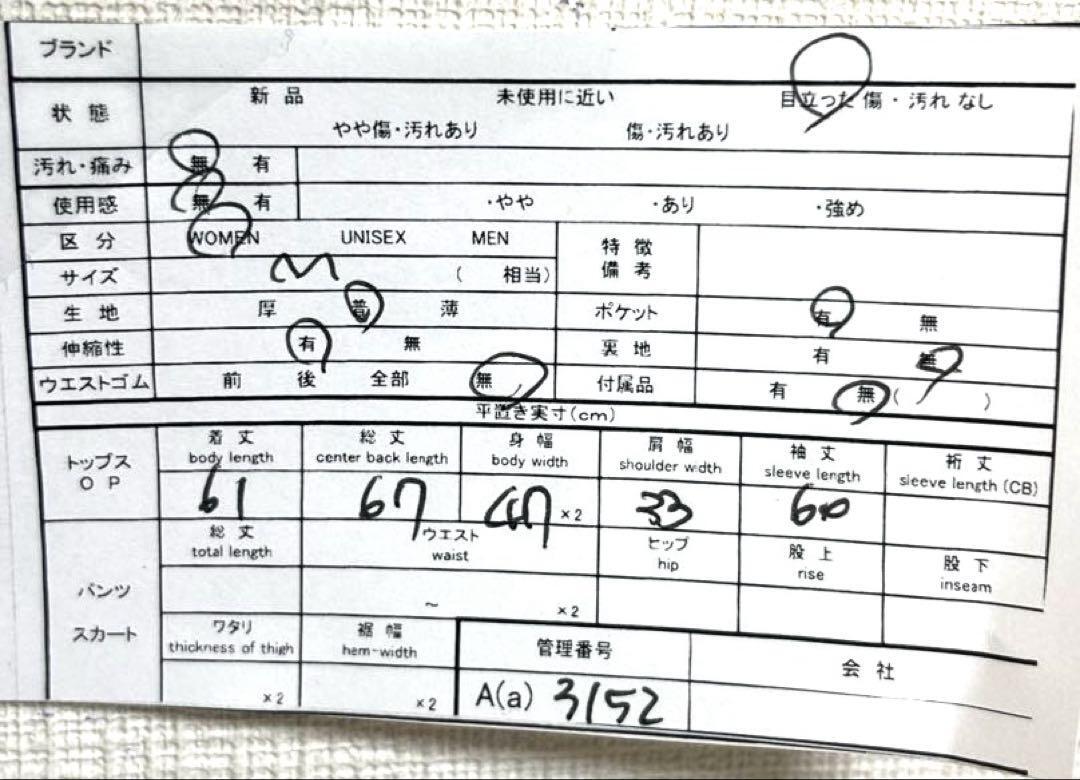 ブランド
状態 新品 未使用に近い 目立った傷・汚れなし
やや傷・汚れあり 傷・汚れあり
汚れ・痛み 無 有
使用感 無 有 ・やや ・あり ・強め
区分 WOMEN UNISEX MEN 特徴備考
サイズ M ( 相当)
生地 厚 普 薄 ポケット 有 無
伸縮性 有 無 裏地 有 無
ウエストゴム 前 後 全部 無 付属品 有 無 ( )
平置き実寸(cm)
トップス OP
着丈 総丈 身幅 肩幅 袖丈 裄丈
body length center back length body width shoulder width sleeve length sleeve length (CB)
61 67 47 ×2 33 60
パンツ スカート
総丈 ウエスト ヒップ 股上 股下
total length waist hip rise inseam
~ ×2
ワタリ 裾幅 管理番号 会社
thickness of thigh hem-width
×2 ×2 A(a) 3152